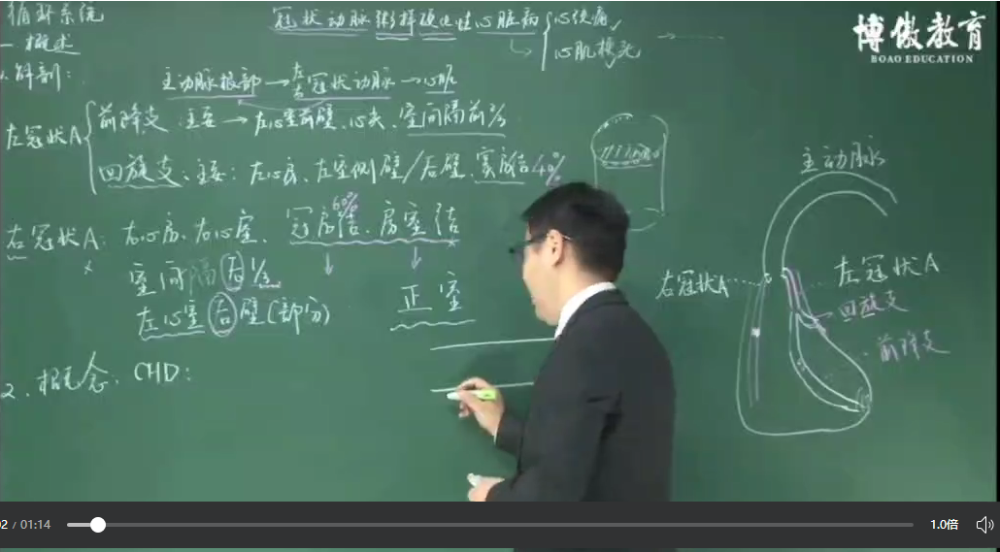 循环系统
冠状动脉粥样硬化性心脏病
心绞痛
心肌梗死
博傲教育
BOAO EDUCATION
一 概述
1.解剖:
主动脉根部→左右冠状动脉→心脏
左冠状A
前降支:主要→左心室前壁、心尖、室间隔前2/3
回旋支、主要:左心房、左室侧壁/后壁、窦房结40%
右冠状A:右心房、右心室、窦房结60%、房室结
室间隔后1/3
左心室后壁(部分)
正室
2.概念. CHD:
主动脉
右冠状A
左冠状A
回旋支
前降支
02 / 01:14
1.0倍